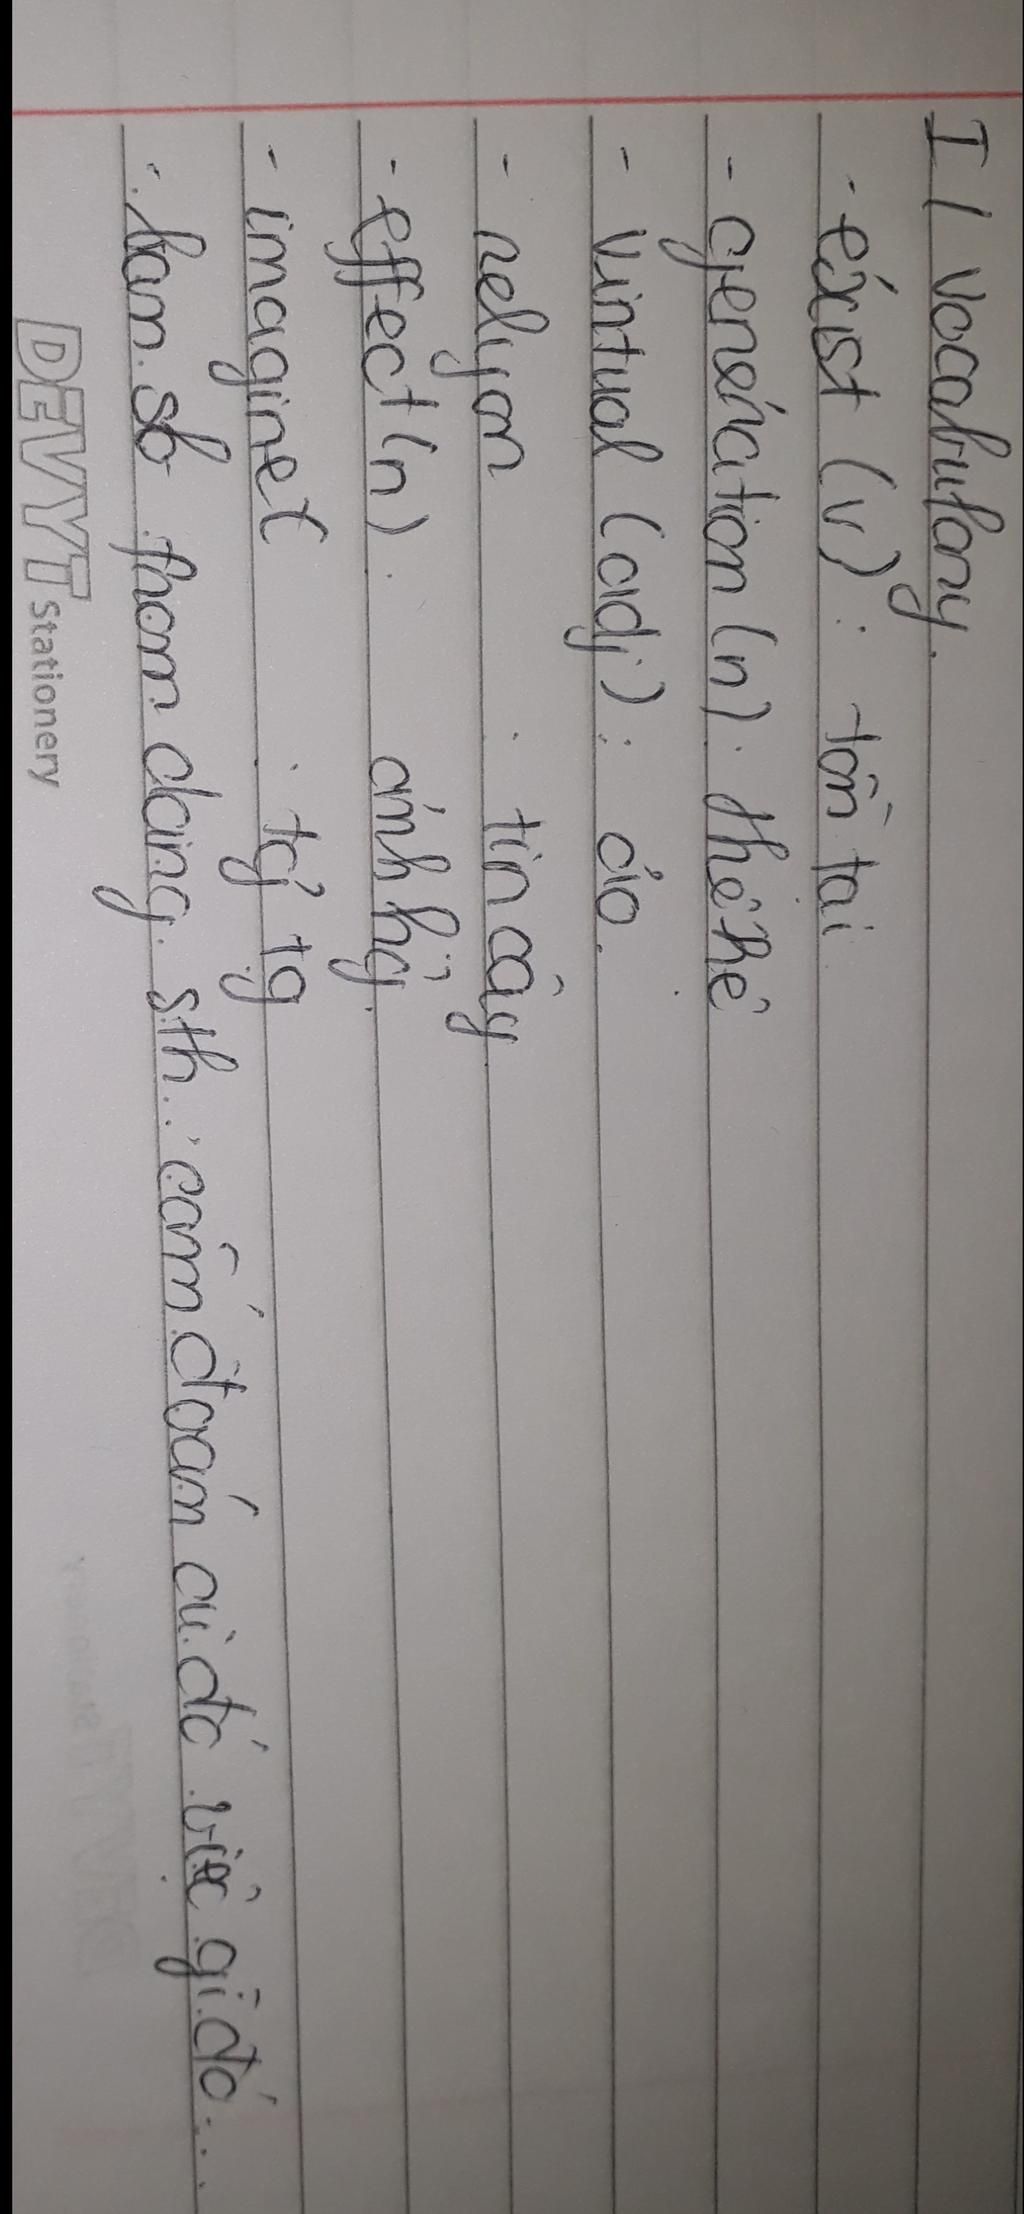 I / Vocabulary.
- exist (v) : tồn tại
- generation (n) : thế hệ
- virtual (adj) : ảo.
- rely on : tin cậy
- effect (n) : ảnh hg̉.
- imagine : tg̉ tg
- ban sb from doing sth : cấm đoán ai đó việc gì đó...
DEVYT Stationery